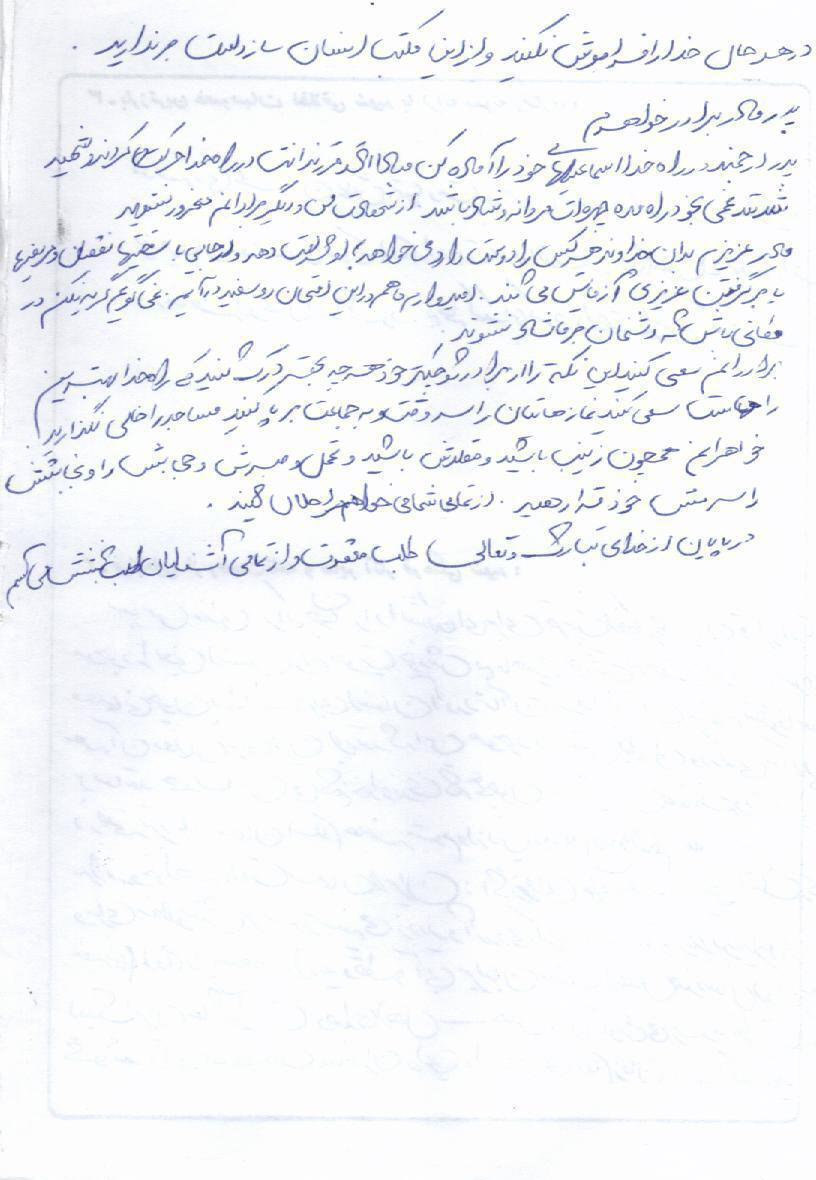 در هر حال خدا را فراموش نکنید و از این مکتب انسان ساز دست برندارید .
پدر و مادر برادر خواهرم
پدر ارجمند در راه خدا اسماعیلهای خود را آماده کن مبادا اگر فرزندانت در راه خدا حرکت کردند و شهید
شدند غمی بخود راه مده چهره ات مردانه و شاد باشد . از شهادت من و دیگر برادرانم محزون نشوید
مادر عزیزم بدان خداوند هر کس را دوست دارد می خواهد به او شهادت دهد و در جایی با سختیها نقصان و مریضیها
با برگرفتن عزیزی آزمایش می کند . امیدوارم ما هم در این امتحان رو سفید درآئیم . نمی گویم گریه نکن در
مکانی باش که دشمنان من شاد نشوند
برادرانم سعی کنید این نکته را از برادر کوچکتر خود هر چه بهتر درک کنید که راه خدا بهترین
راههاست سعی کنید نمازهایتان را سر وقت و به جماعت بر پا کنید مساجد را خالی نگذارید
خواهرانم همچون زینب باشید و مقلدش باشید و تحمل و صبرش و حجابش را و نجابتش
را سرمشق خود قرار دهید . از تمامی شما می خواهم مرا حلال کنید .
در پایان از خدای تبارک و تعالی طلب مغفرت و از تمامی آشنایان طلب بخشش می کنم